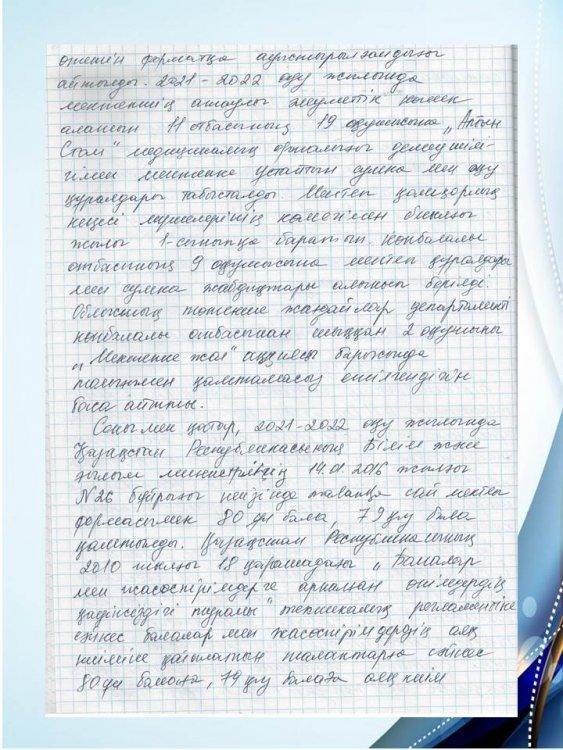 өтетін форматқа ауыстырылғандығы
айтылды. 2021-2022 оқу жылында
мектептің атаулы әлуметтік көмек
алатын 11 отбасының 19 оқушысына „Алтын
медициналық орталығы демеушілі-
гімен мектепке ұстатын сумка мен оқу
құралдары табысталды. Мектеп қамқорлық
кеңесі мүшелерінің көмегімен биылғы
жылы 1-сыныпқа баратын көпбалалы
отбасының 9 оқушысына мектеп құралдары
мен сумка жабдықтары алынып берілді.
Облыстық төтенше жағдайлар департаменті
көпбалалы отбасынан шыққан 2 оқушыны
„Мектепке жол" акциясы барысында
толығымен қамтамасыз ететіндігін
баса айтты.
Сонымен қатар, 2021-2022 оқу жылында
Қазақстан Республикасының Білім және
ғылым министрінің 14.01.2016 жылғы
№26 бұйрығы негізінде талапқа сай мектеп
формасымен 80 қыз бала, 79 ұл бала
қамтылды. Қазақстан Республикасының
2010 жылғы 18 қарашадағы „Балалар
мен жасөспірімдерге арналған өнімдердің
қауіпсіздігі туралы" техникалық регламентіне
сәйкес балалар мен жасөспірімдердің аяқ
киіміне қойылатын талаптарға сәйкес
80 қыз балаға, 79 ұл балаға аяқ киім